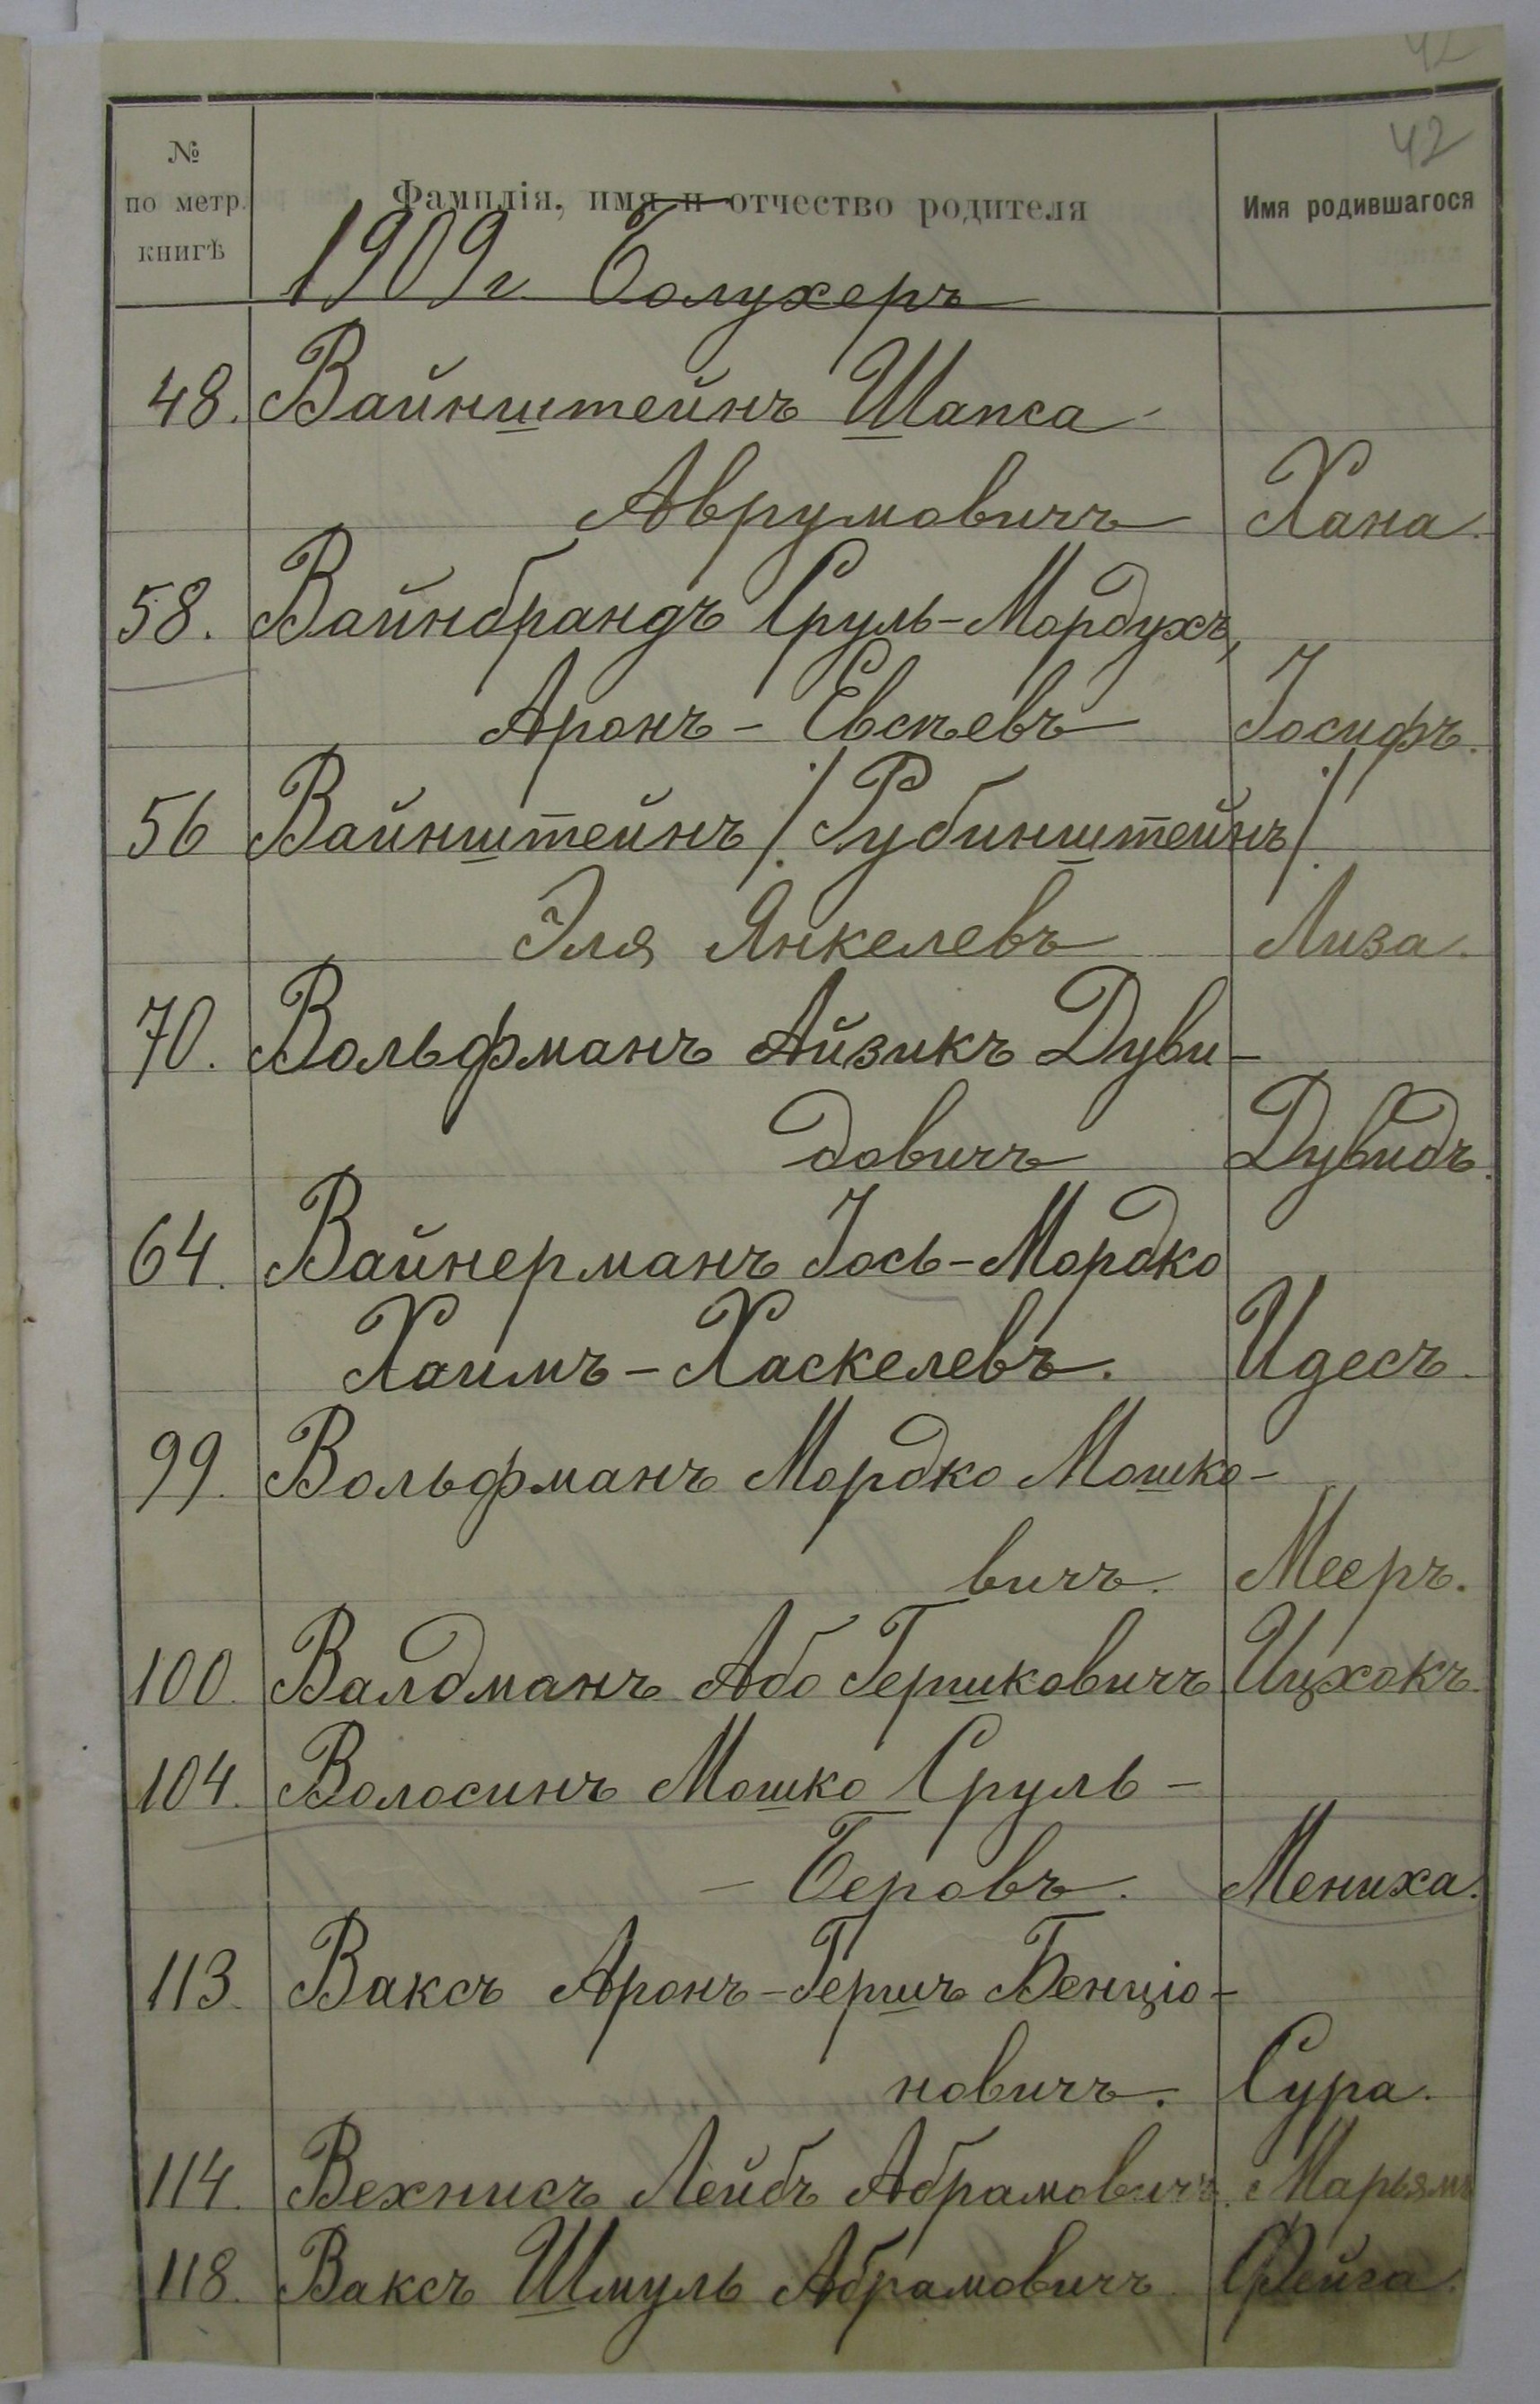 42
42
№ по метр. книгѣ
Фамилія, имя и отчество родителя
Имя родившагося
1909 г. Болухеръ
48. Вайнштейнъ Шапса
Аврумовичъ Хана.
58. Вайнбрандъ Сруль-Мордухъ,
Аронъ-Евсѣевъ Іосифъ.
56 Вайнштейнъ /Рубинштейнъ/
Эля Янкелевъ Лиза.
70. Вольфманъ Айзикъ Дуви-
довичъ Дувидъ.
64. Вайнерманъ Іось-Мордко
Хаимъ-Хаскелевъ. Идесъ.
99. Вольфманъ Мордко Мошко-
вичъ. Мееръ.
100. Валдманъ Або Гершковичъ Ицхокъ.
104. Волосинъ Мошко Сруль-
-Беровъ. Мениха.
113. Ваксъ Аронъ-Гершъ Бенціо-
новичъ. Сура.
114. Вехнисъ Лейбъ Абрамовичъ. Марьямъ
118. Ваксъ Шмуль Абрамовичъ. Фейга.